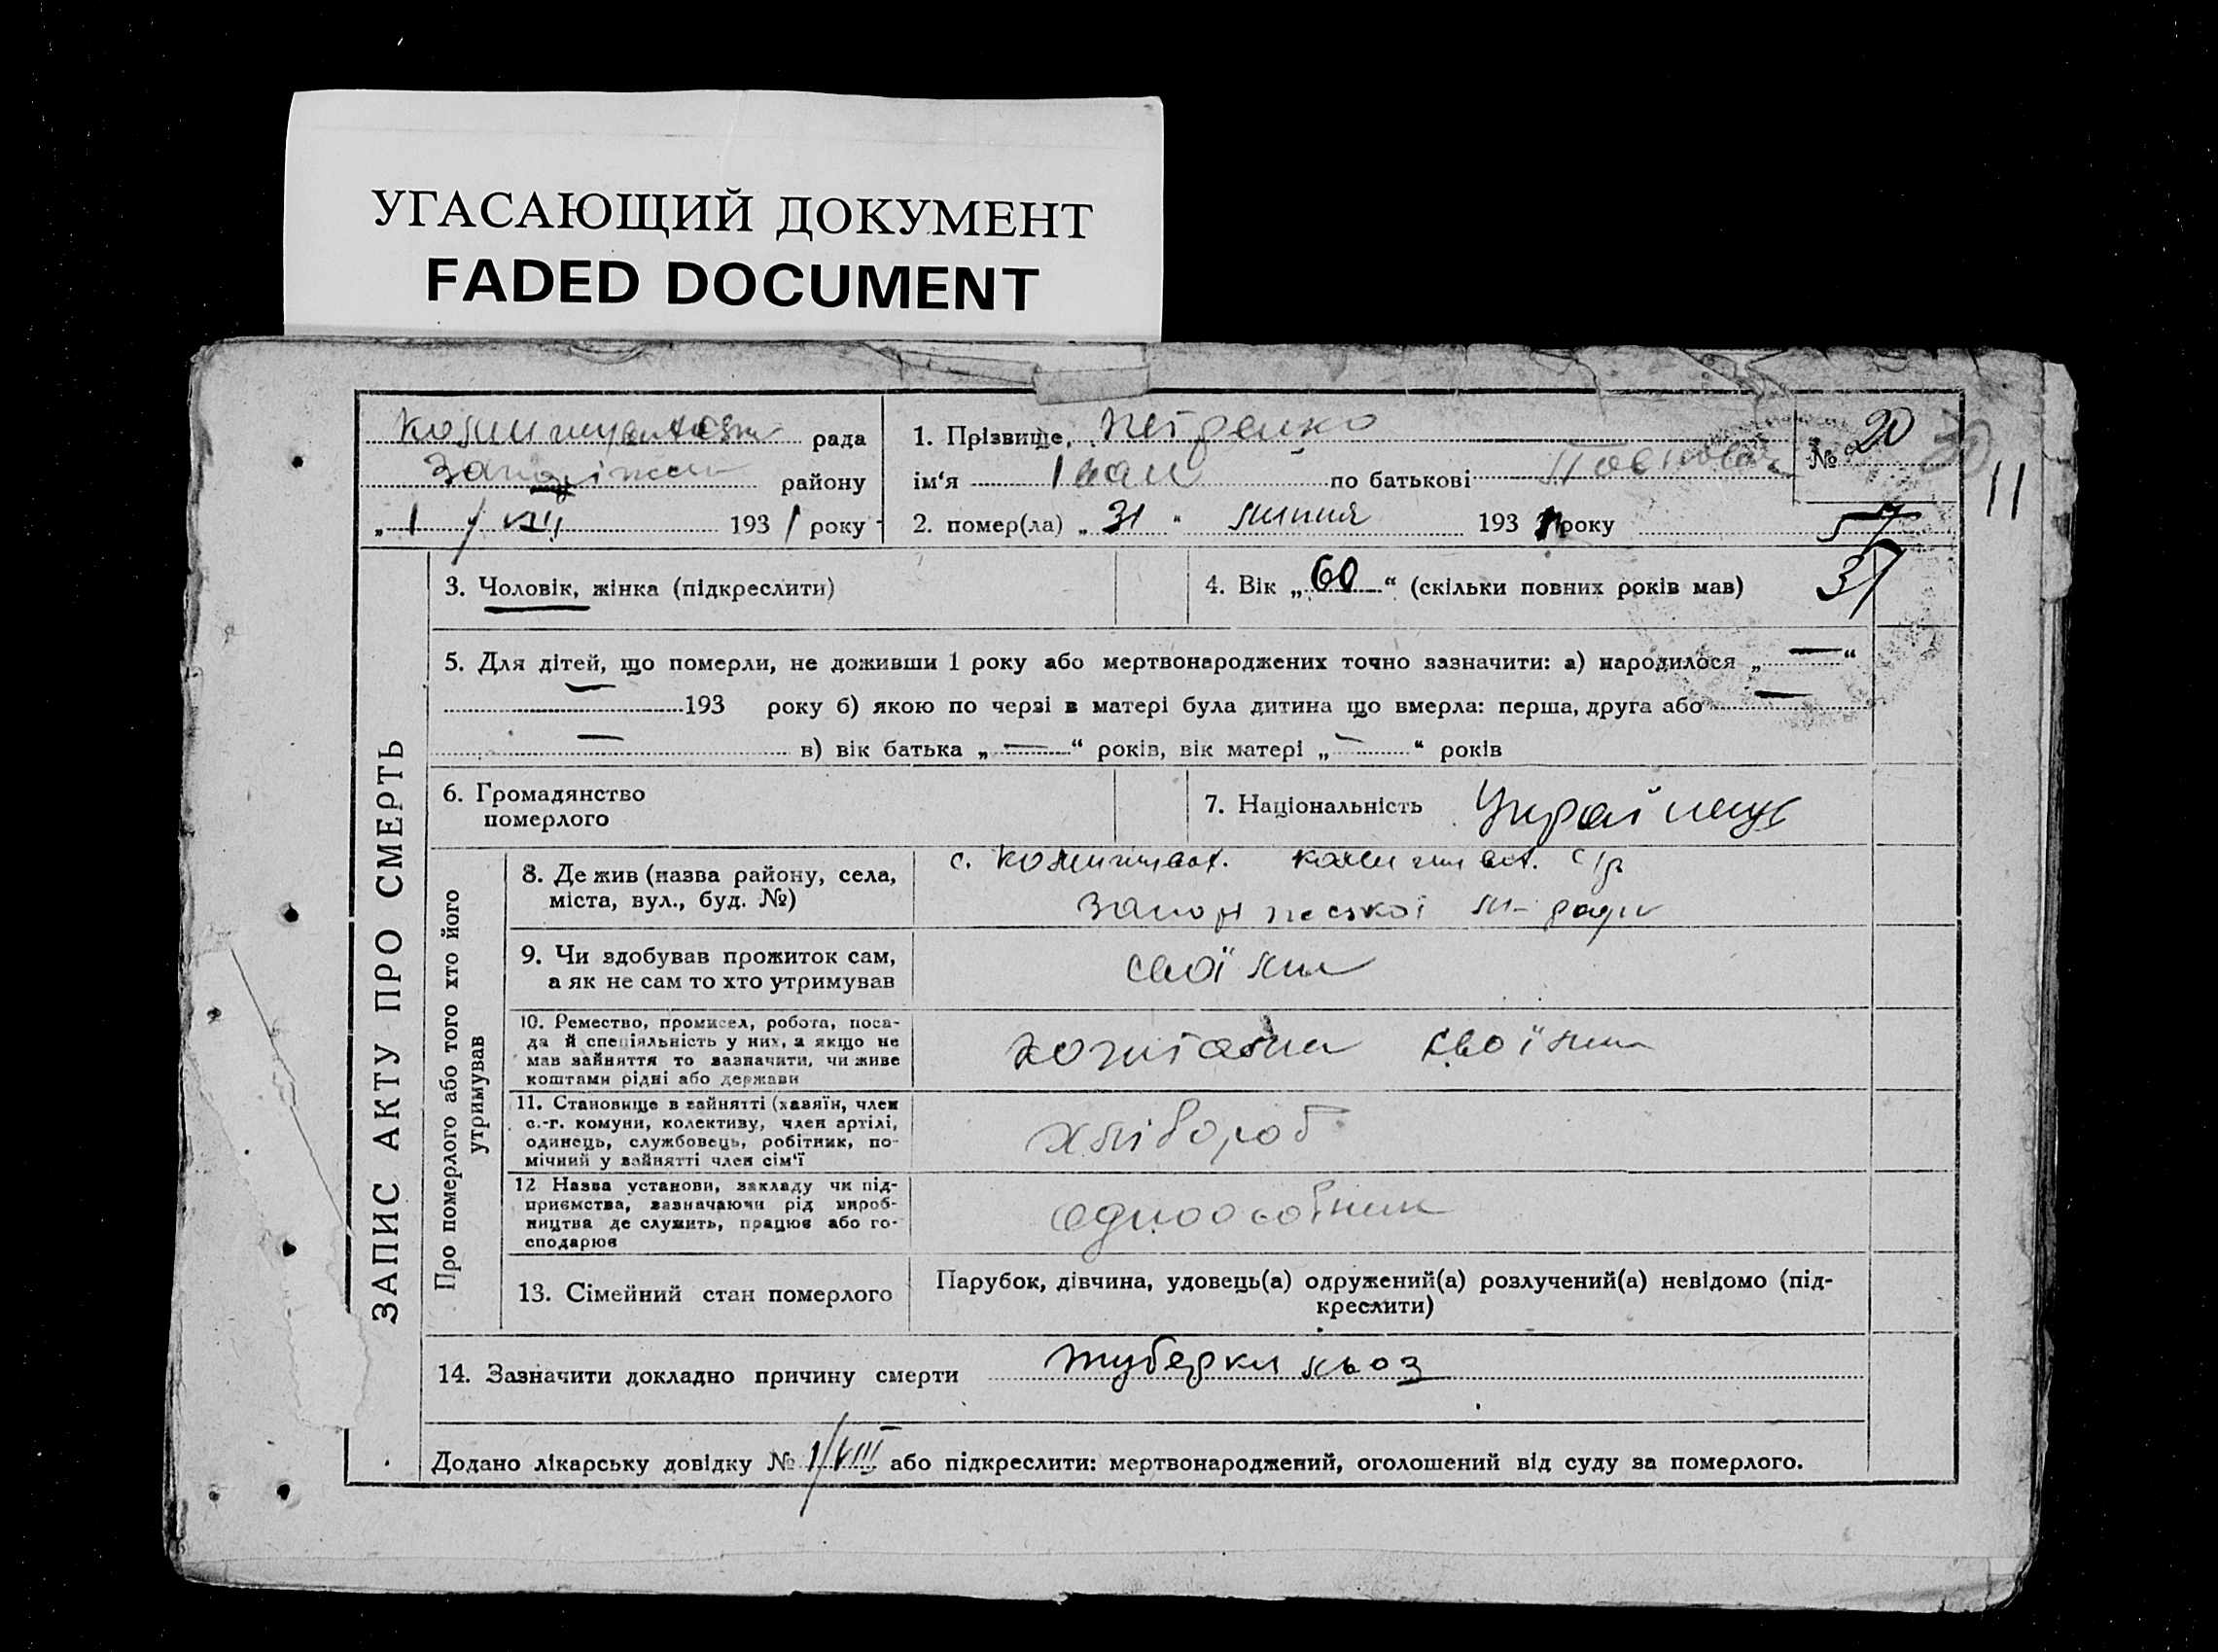 УГАСАЮЩИЙ ДОКУМЕНТ
FADED DOCUMENT
рада
району
„ 1 / VIII 1931 року
1. Прізвище, Петренко
ім‘я Іван по батькові
№ 20
30
11
2. помер(ла) „ 31 “ липня 1931 року
57
37
ЗАПИС АКТУ ПРО СМЕРТЬ
3. Чоловік, жінка (підкреслити)
4. Вік „ 60 “ (скільки повних років мав)
5. Для дітей, що померли, не доживши 1 року або мертвонароджених точно зазначити: а) народилося „ — “
— 193 року б) якою по черзі в матері була дитина що вмерла: перша, друга або —
— в) вік батька „ — “ років, вік матері „ — “ років
6. Громадянство
померлого
7. Національність Українець
Про померлого або того хто його
утримував
8. Де жив (назва району, села,
міста, вул., буд. №)
с. Комишуват. Комишуват. с/р
Запорізької м-ради
9. Чи здобував прожиток сам,
а як не сам то хто утримував
своїми
10. Ремество, промисел, робота, поса-
да й спеціяльність у них, а якщо не
мав зайняття то зазначити, чи живе
коштами рідні або держави
коштами своїми
11. Становище в зайнятті (хазяїн, член
с.-г. комуни, колективу, член артілі,
одинець, службовець, робітник, по-
мічний у зайнятті член сім‘ї
хлібороб
12 Назва установи, закладу чи під-
приємства, зазначаючи рід вироб-
ництва де служить, працює або го-
сподарює
одноосібник
13. Сімейний стан померлого
Парубок, дівчина, удовець(а) одружений(а) розлучений(а) невідомо (під-
креслити)
14. Зазначити докладно причину смерти туберкильоз
Додано лікарську довідку № 1/VIII або підкреслити: мертвонароджений, оголошений від суду за померлого.